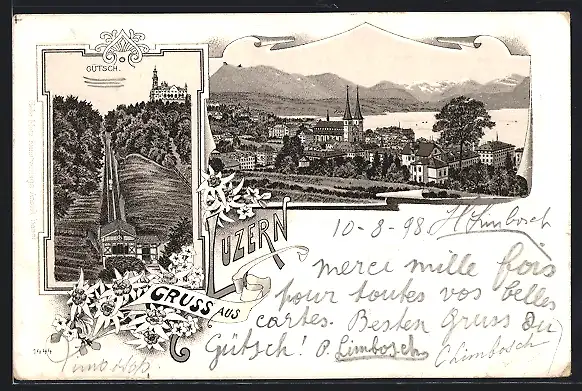 GÜTSCH.
10-8-98 H Limbosch
LUZERN
merci mille fois
pour toutes vos belles
GRUSS AUS
cartes. Besten Gruss du
Gütsch! P. Limbosch
C Limbosch
1444
Limbosch